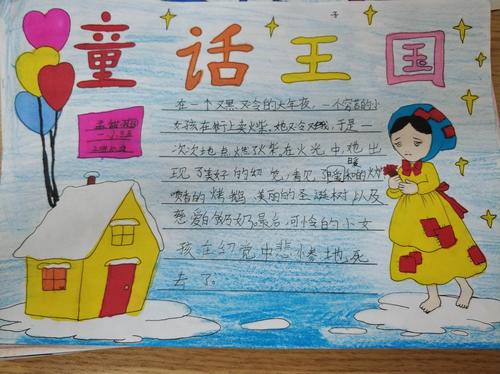 童话王国
在一个又黑又冷的大年夜,一个穷苦的小
女孩在街上卖火柴,她又冷又饿,于是一
次次地点燃了火柴,在火光中,她出
现了美好的幻觉,看见了暖和的火炉
喷香的烤鹅,美丽的圣诞树以及
慈爱的奶奶,最后,可怜的小女
孩在幻觉中悲惨地死
去了。